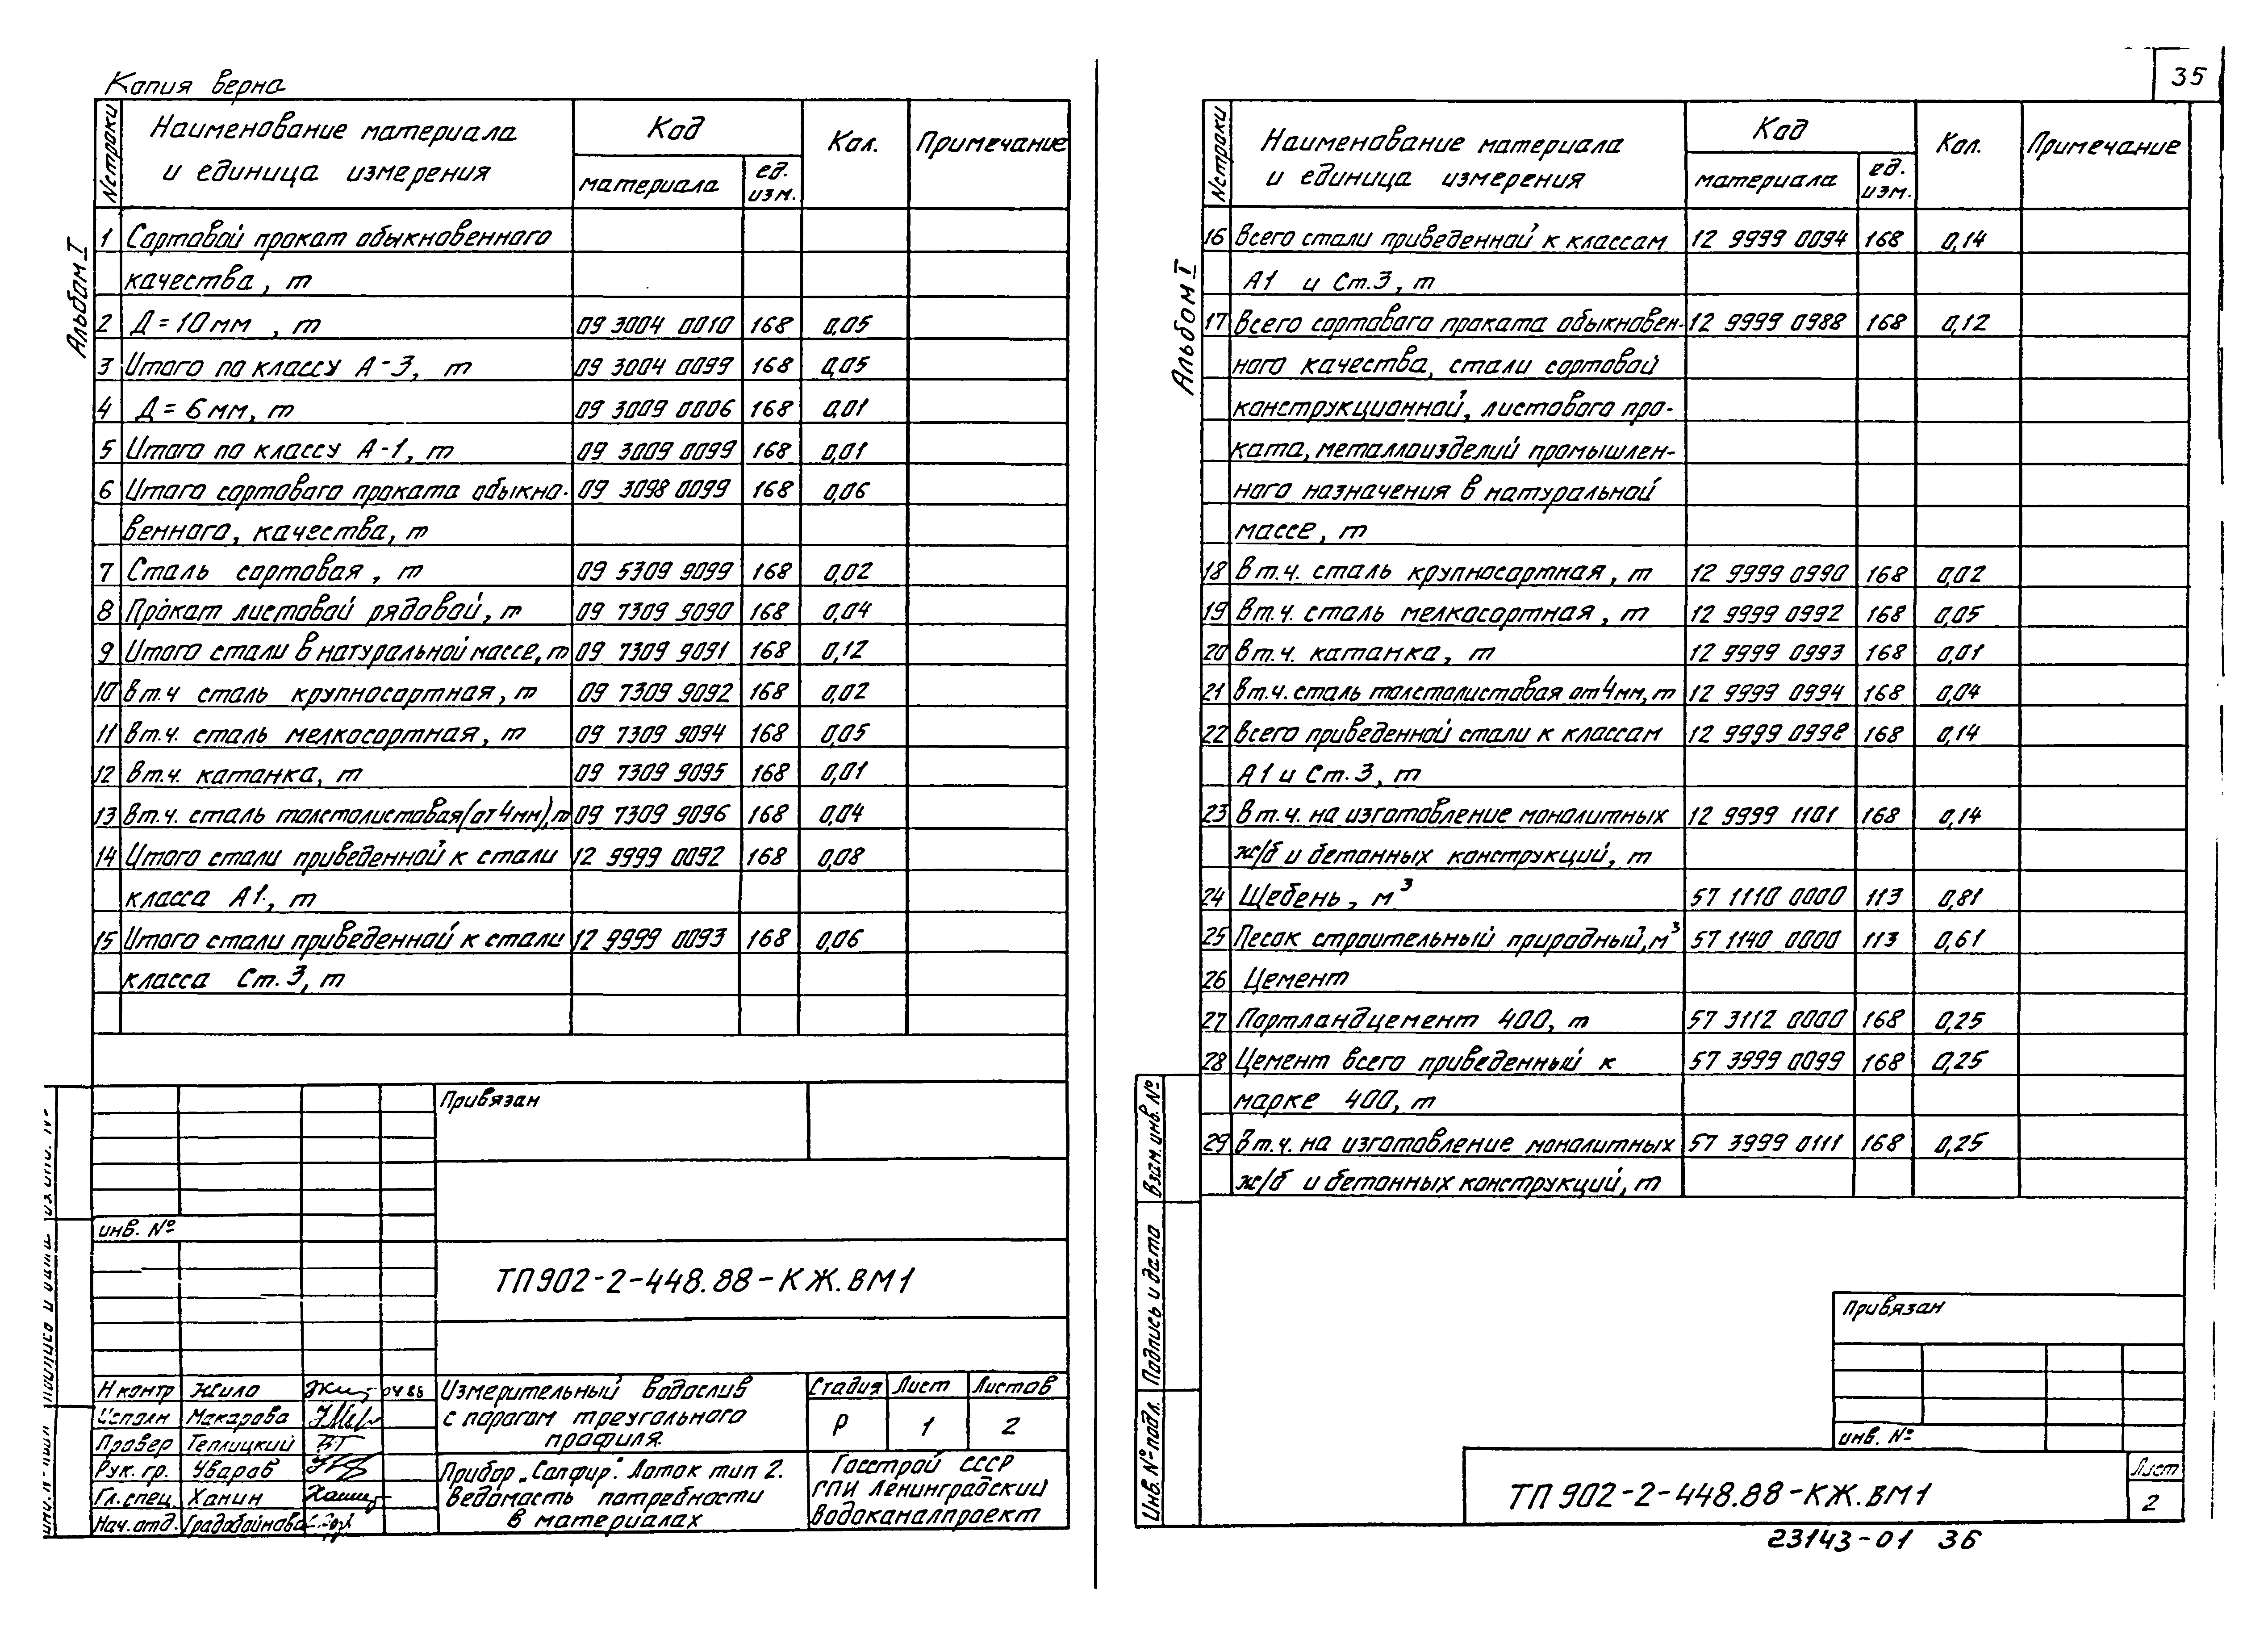 Копия верна
Альбом I
№строки Наименование материала и единица измерения Код Кол. Примечание
материала ед. изм.
1 Сортовой прокат обыкновенного
качества, т
2 Д=10мм, т 09 3004 0010 168 0,05
3 Итого по классу А-3, т 09 3004 0099 168 0,05
4 Д=6мм, т 09 3009 0006 168 0,01
5 Итого по классу А-1, т 09 3009 0099 168 0,01
6 Итого сортового проката обыкно- 09 3098 0099 168 0,06
венного, качества, т
7 Сталь сортовая, т 09 5309 9099 168 0,02
8 Прокат листовой рядовой, т 09 7309 9090 168 0,04
9 Итого стали в натуральной массе, т 09 7309 9091 168 0,12
10 в т.ч сталь крупносортная, т 09 7309 9092 168 0,02
11 в т.ч. сталь мелкосортная, т 09 7309 9094 168 0,05
12 в т.ч. катанка, т 09 7309 9095 168 0,01
13 в т.ч. сталь толстолистовая (от 4мм), т 09 7309 9096 168 0,04
14 Итого стали приведенной к стали 12 9999 0092 168 0,08
класса А1, т
15 Итого стали приведенной к стали 12 9999 0093 168 0,06
класса Ст.3, т
Привязан
инв. №
ТП902-2-448.88-КЖ.ВМ1
Н контр Жила 04 88
Исполн Макарова
Провер Теплицкий
Рук. гр. Уваров
Гл. спец. Ханин
Нач. отд.
Измерительный водослив
с порогом треугольного
профиля.
Прибор „Сапфир". Лоток тип 2.
Ведомость потребности
в материалах
Стадия Лист Листов
Р 1 2
Госстрой СССР
ГПИ Ленинградский
Водоканалпроект
35
Альбом I
№строки Наименование материала и единица измерения Код Кол. Примечание
материала ед. изм.
16 Всего стали приведенной к классам 12 9999 0094 168 0,14
А1 и Ст.3, т
17 Всего сортового проката обыкновен- 12 9999 0988 168 0,12
ного качества, стали сортовой
конструкционной, листового про-
ката, металлоизделий промышлен-
ного назначения в натуральной
массе, т
18 В т.ч. сталь крупносортная, т 12 9999 0990 168 0,02
19 В т.ч. сталь мелкосортная, т 12 9999 0992 168 0,05
20 В т.ч. катанка, т 12 9999 0993 168 0,01
21 В т.ч. сталь толстолистовая от 4мм, т 12 9999 0994 168 0,04
22 Всего приведенной стали к классам 12 9999 0998 168 0,14
А1 и Ст.3, т
23 В т.ч. на изготовление монолитных 12 9999 1101 168 0,14
ж/б и бетонных конструкций, т
24 Щебень, м³ 57 1110 0000 113 0,81
25 Песок строительный природный, м³ 57 1140 0000 113 0,61
26 Цемент
27 Портландцемент 400, т 57 3112 0000 168 0,25
28 Цемент всего приведенный к 57 3999 0099 168 0,25
марке 400, т
29 В т.ч. на изготовление монолитных 57 3999 0111 168 0,25
ж/б и бетонных конструкций, т
Взам. инв. №
Подпись и дата
Инв. № подл.
Привязан
инв. №
ТП 902-2-448.88-КЖ.ВМ1
Лист
2
23143-01 36